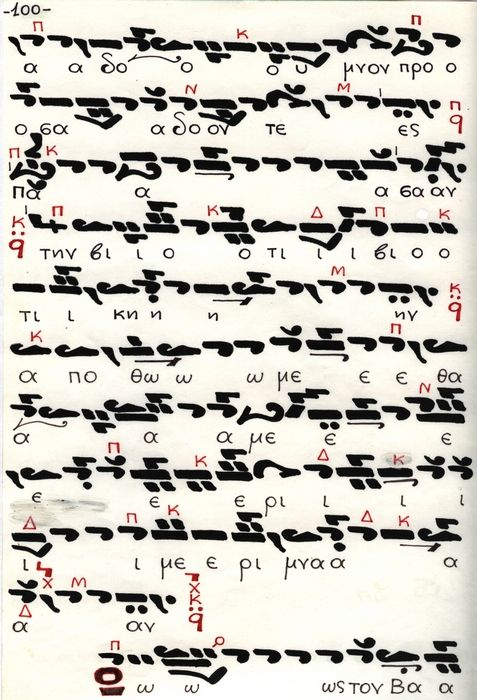 -100-
α α δο ο ο υ μνον προ ο
ο σα α δο ον τε ες
πα α α σα αν
την βι ι ο ο τι ι ι βι ο ο
τι ι κη η η ην
α πο θω ω ω με ε ε θα
α α α με ε ε
ε ε ε ρι ι ι ι
ι ι με ε ρι μνα α α
α αν
ω ω ως τον Βα α